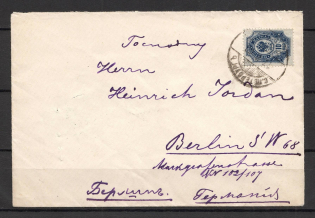 Господину
Herrn
Heinrich Jordan
Berlin S W 68
Markgrafenstrasse
102/107
Берлинъ. Германія